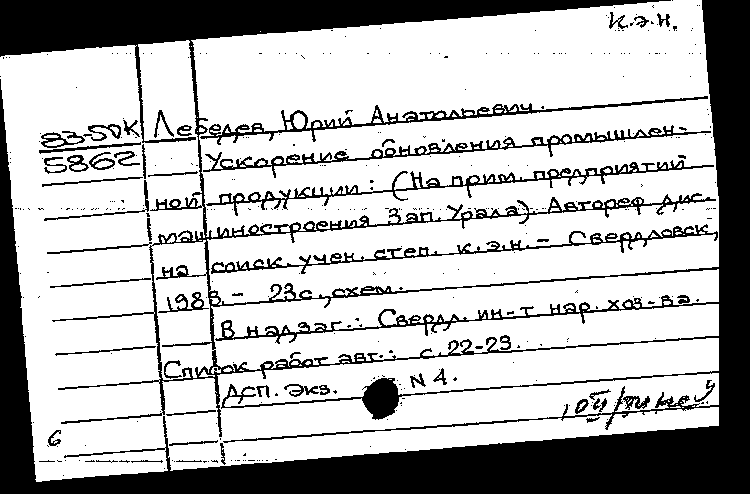 К.э.н.
83-5DK Лебедев, Юрий Анатольевич.
5862 Ускорение обновления промышлен-
ной продукции: (На прим. предприятий
машиностроения Зап. Урала). Автореф. дис.
на соиск. учен. степ. к.э.н. - Свердловск,
1983. - 23с., схем.
В надзаг.: Свердл. ин-т нар. хоз-ва.
Список работ авт.: с. 22-23.
ДСП. Экз. N 4.
6